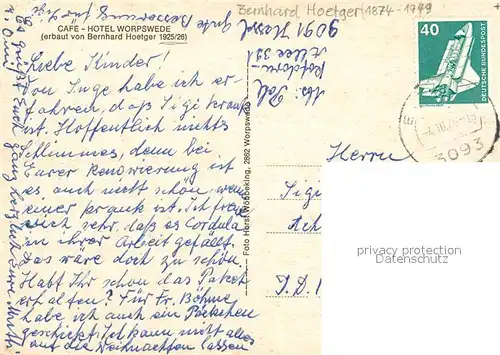 Bernhard Hoetger (1874-1949
CAFÉ - HOTEL WORPSWEDE
(erbaut von Bernhard Hoetger 1925/26)
Liebe Kinder!
Von Inge habe ich er-
fahren, daß Sigi krank
ist. Hoffentlich nichts
Schlimmes, denn bei
Eurer Renovierung ist
es auch nicht schön, wenn
einer krank ist. Ich freue
mich sehr, daß es Cordula
in ihrer Arbeit gefällt.
Das wäre doch zu schön.
Habt Ihr schon das Paket
erhalten? Für Fr. Böhme
habe ich auch ein Päckchen
geschickt. Ich kann nicht alles
auf die Weihnachten lassen
Es grüßt Euch ganz herzlich Eure Mutti
u. Omi
gute Besserung für Sigi
Abs:
9091
Foto Horst Wöbbeking, 2862 Worpswede
40
DEUTSCHE BUNDESPOST
3093
Herrn
Sigi
privacy protection
privacy protection